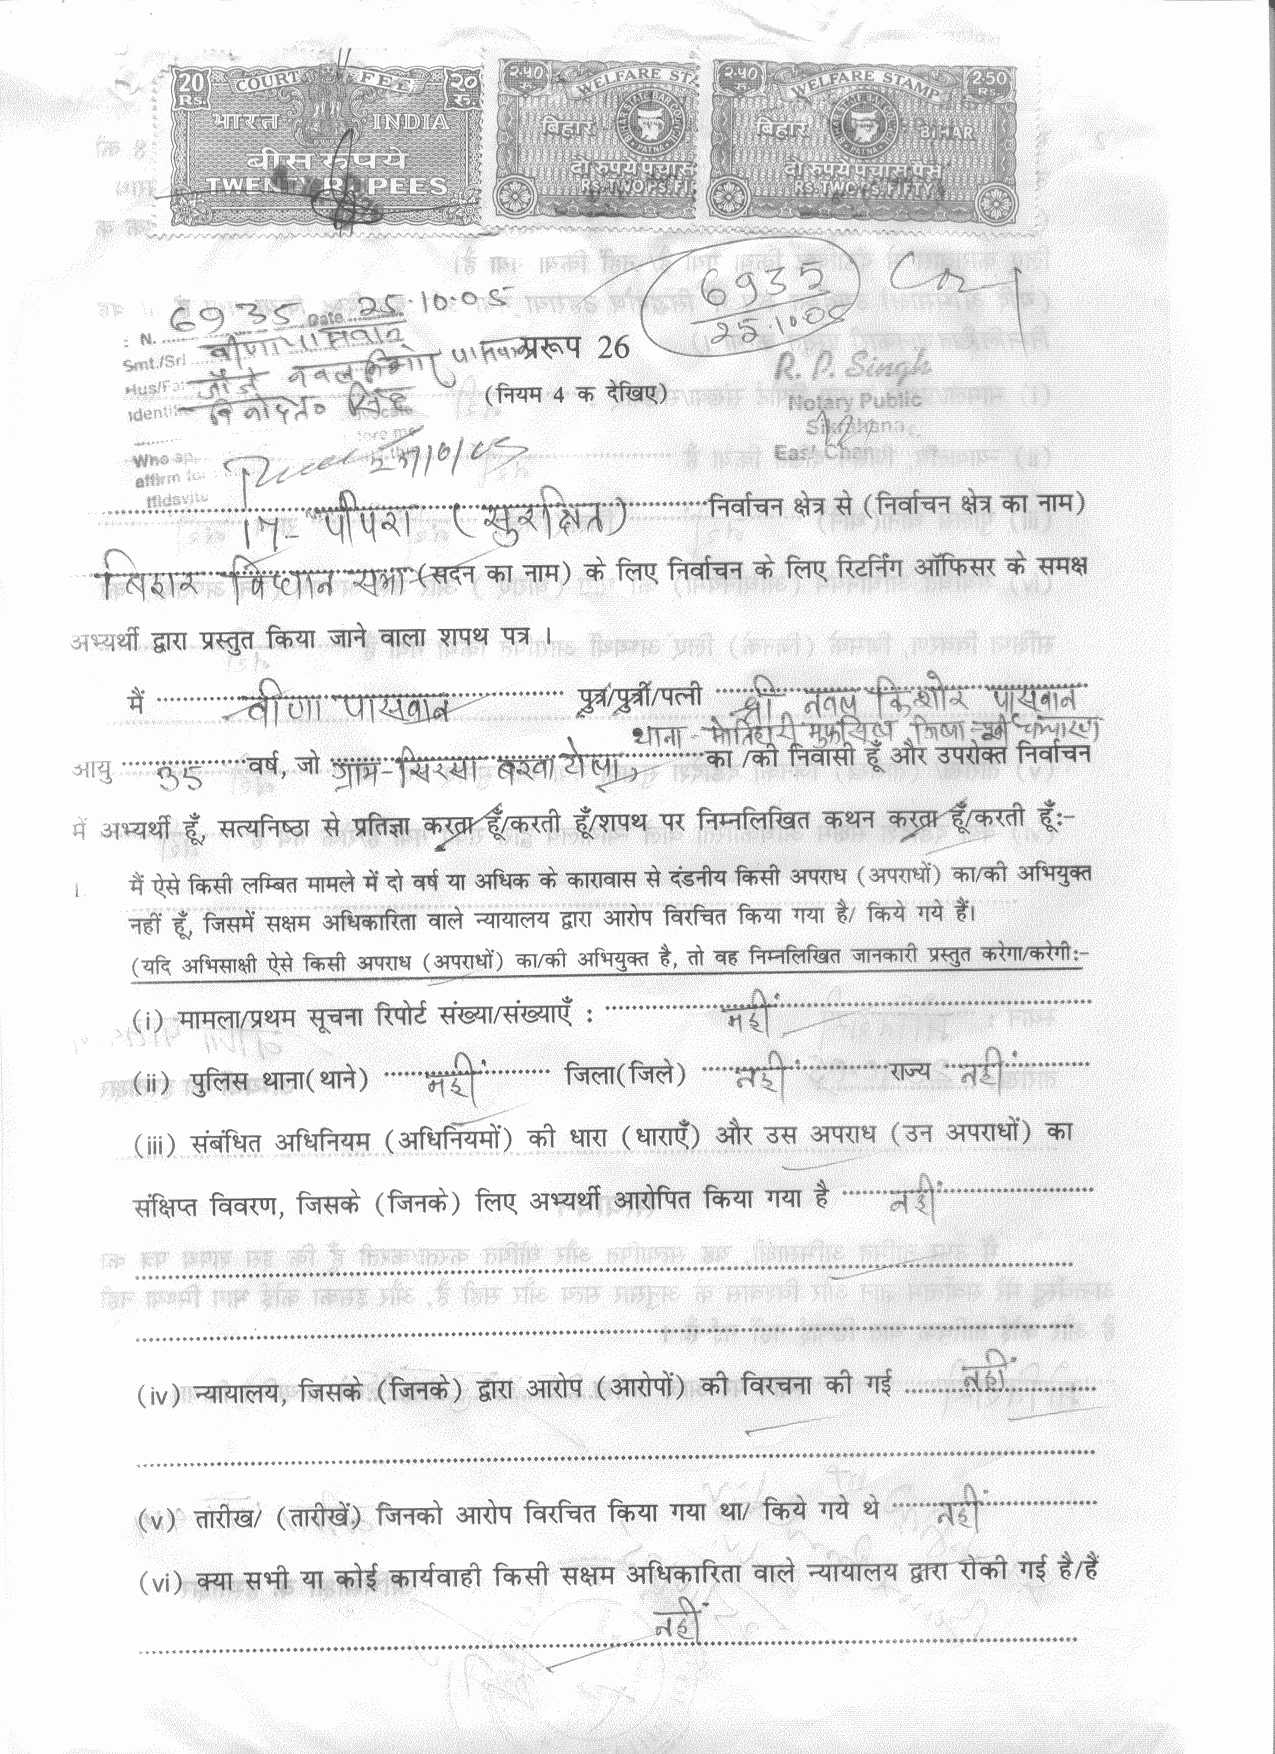 20 COURT FEE २०
Rs. रु.
भारत INDIA
बीस रुपये
TWENTY RUPEES
२.५० WELFARE STA
रु.
बिहार
दो रुपये पचास
RS. TWO PS. FI
२.५० WELFARE STAMP 2.50
रु. Rs.
बिहार BIHAR
दो रुपये पचास पैसे
RS. TWO PS. FIFTY
6935
25.10.05
N. 6935 Date 25.10.05
Smt./Sri वीणा पासवान
Hus/Fa जौजे नवल किशोर पासवान
Identifi
Who ap
affirm
ffidavits
25/10/05
प्ररूप 26
(नियम 4 क देखिए)
R. P. Singh
Notary Public
Sikrahana
East Cham
17- पीपरा (सुरक्षित) निर्वाचन क्षेत्र से (निर्वाचन क्षेत्र का नाम)
बिहार विधान सभा (सदन का नाम) के लिए निर्वाचन के लिए रिटर्निंग ऑफिसर के समक्ष
अभ्यर्थी द्वारा प्रस्तुत किया जाने वाला शपथ पत्र ।
मैं वीणा पासवान पुत्र/पुत्री/पत्नी श्री नवल किशोर पासवान
थाना - मोतिहारी मुफसिल जिला - पूर्वी चम्पारण
आयु 35 वर्ष, जो ग्राम - सिरसा बरवा टोला, का /की निवासी हूँ और उपरोक्त निर्वाचन
में अभ्यर्थी हूँ, सत्यनिष्ठा से प्रतिज्ञा करता हूँ/करती हूँ/शपथ पर निम्नलिखित कथन करता हूँ/करती हूँ:-
1. मैं ऐसे किसी लम्बित मामले में दो वर्ष या अधिक के कारावास से दंडनीय किसी अपराध (अपराधों) का/की अभियुक्त
नहीं हूँ, जिसमें सक्षम अधिकारिता वाले न्यायालय द्वारा आरोप विरचित किया गया है/ किये गये हैं।
(यदि अभिसाक्षी ऐसे किसी अपराध (अपराधों) का/की अभियुक्त है, तो वह निम्नलिखित जानकारी प्रस्तुत करेगा/करेगी:-
(i) मामला/प्रथम सूचना रिपोर्ट संख्या/संख्याएँ : नहीं
(ii) पुलिस थाना(थाने) नहीं जिला(जिले) नहीं राज्य नहीं
(iii) संबंधित अधिनियम (अधिनियमों) की धारा (धाराएँ) और उस अपराध (उन अपराधों) का
संक्षिप्त विवरण, जिसके (जिनके) लिए अभ्यर्थी आरोपित किया गया है नहीं
(iv) न्यायालय, जिसके (जिनके) द्वारा आरोप (आरोपों) की विरचना की गई नहीं
(v) तारीख/ (तारीखें) जिनको आरोप विरचित किया गया था/ किये गये थे नहीं
(vi) क्या सभी या कोई कार्यवाही किसी सक्षम अधिकारिता वाले न्यायालय द्वारा रोकी गई है/हैं
नहीं